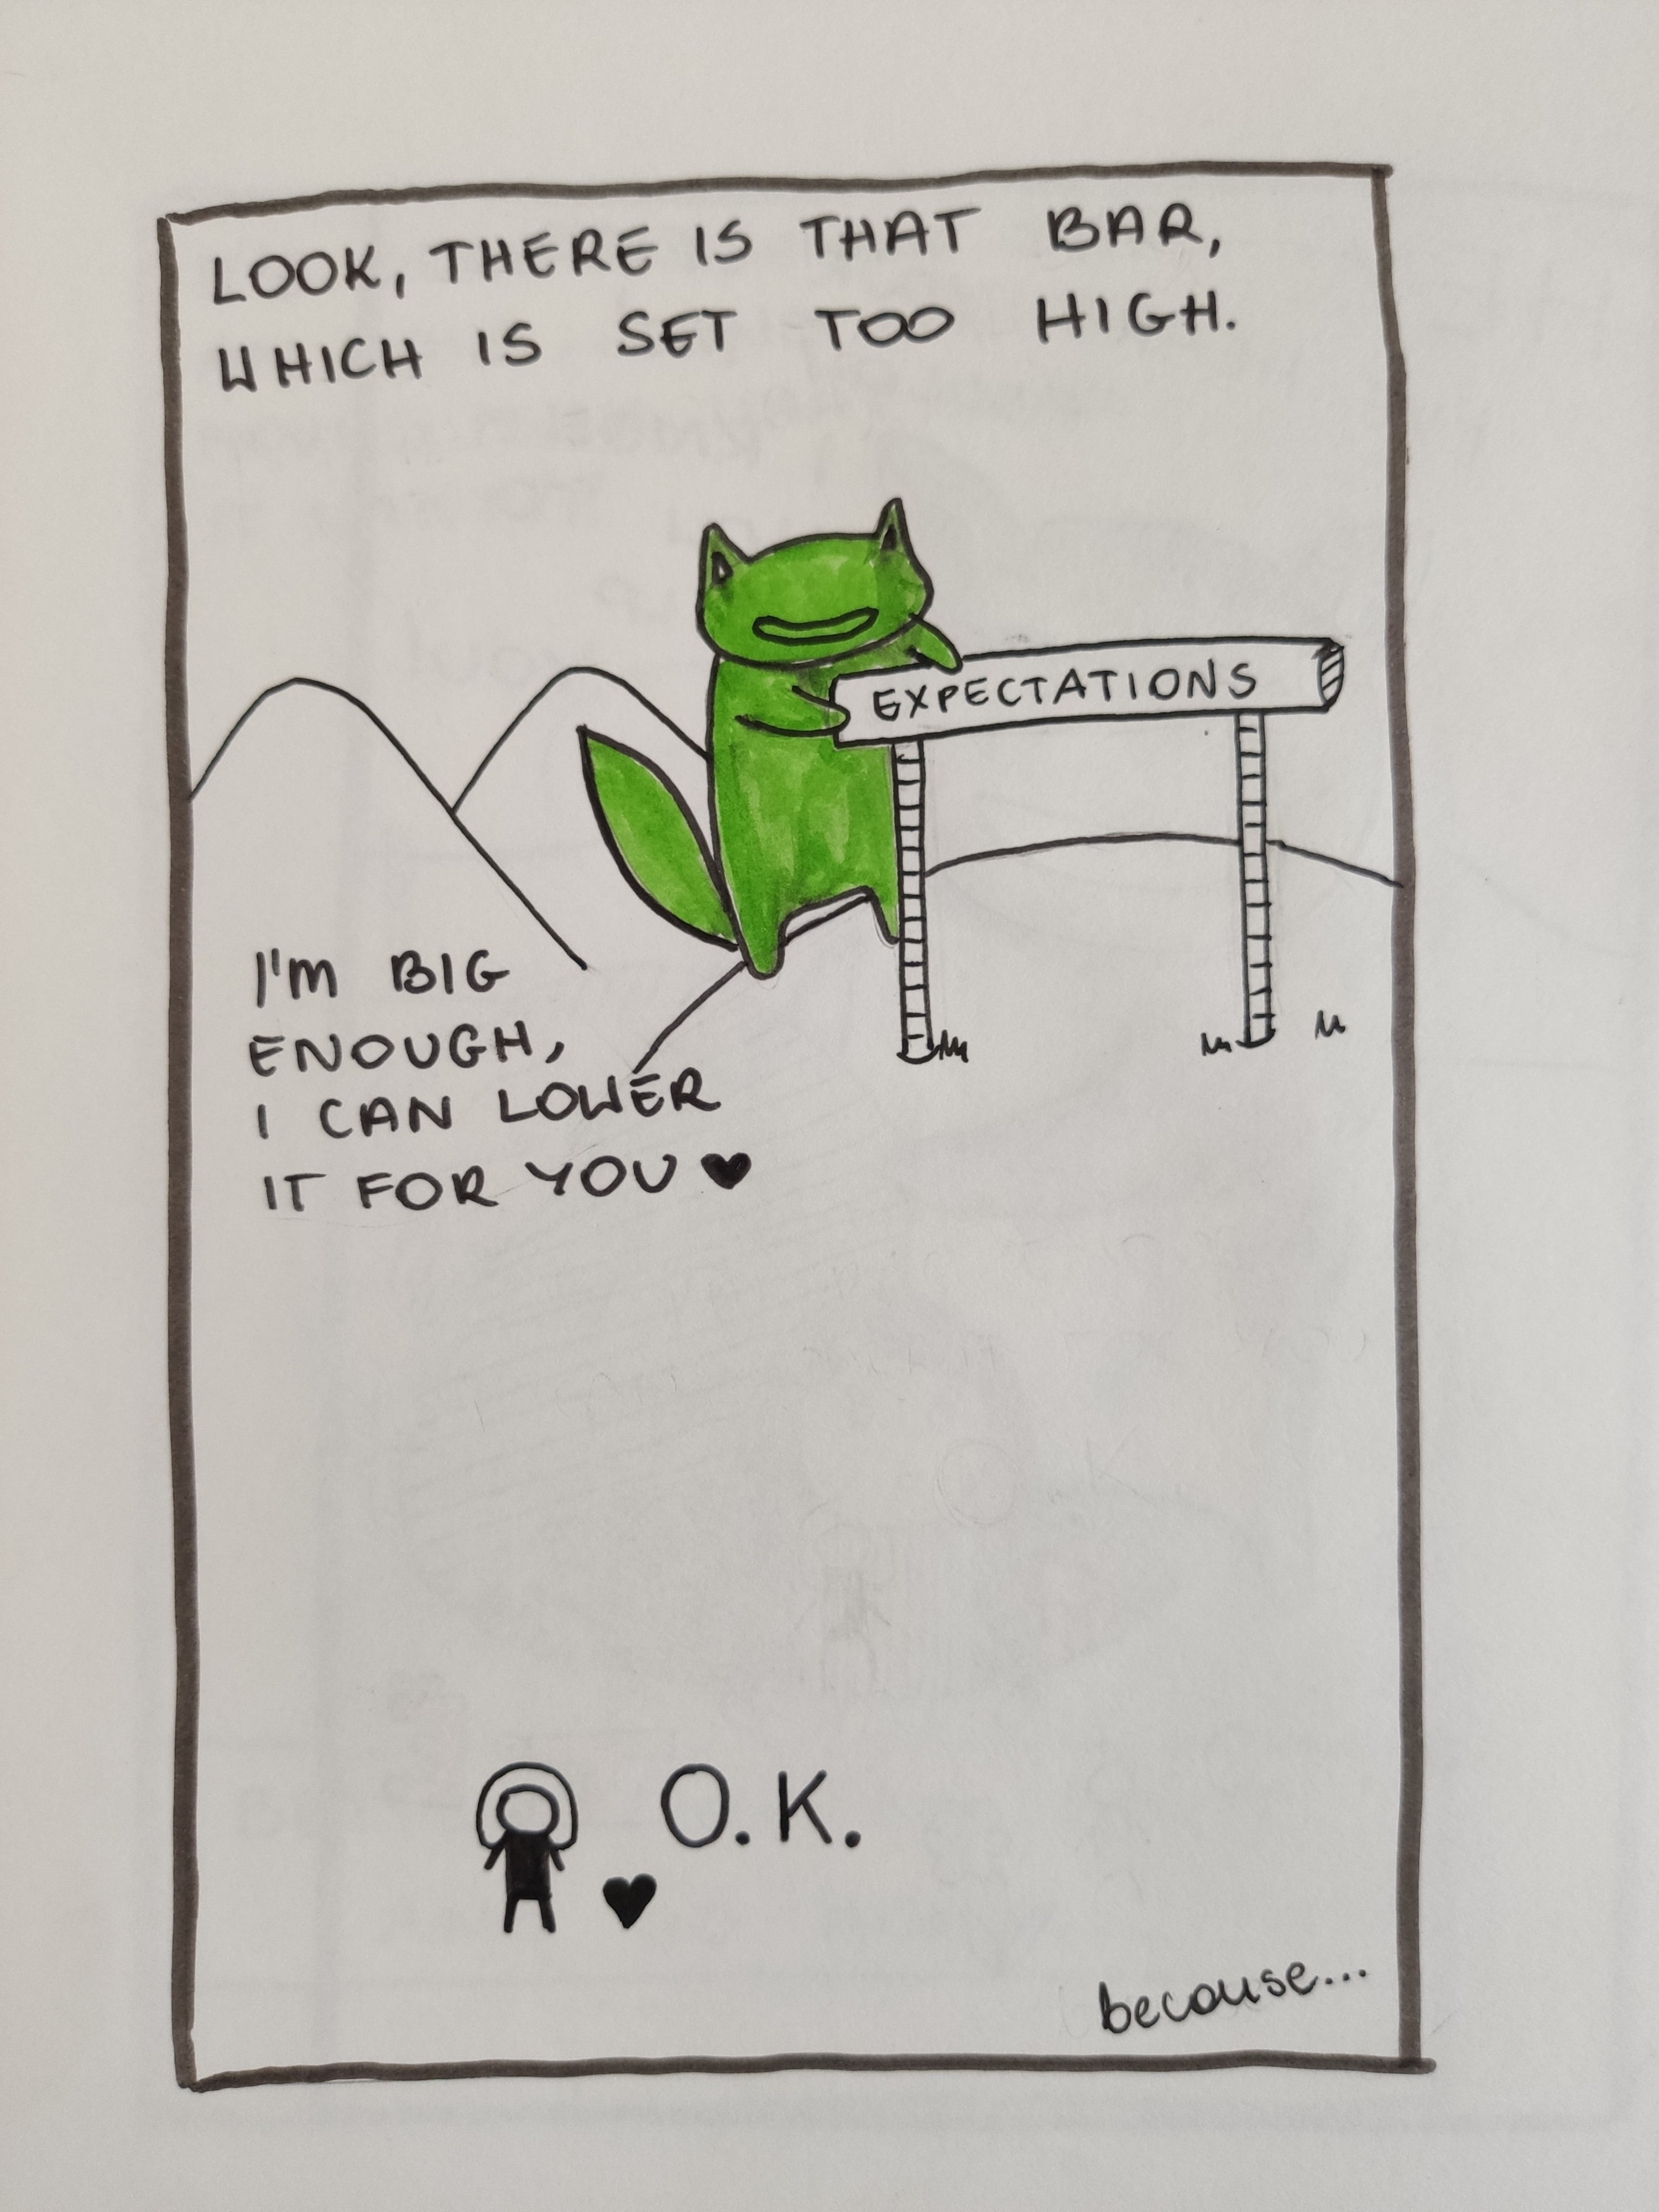 LOOK, THERE IS THAT BAR,
WHICH IS SET TOO HIGH.
EXPECTATIONS
I'M BIG
ENOUGH,
I CAN LOWER
IT FOR YOU ♥
O.K.
♥
because...